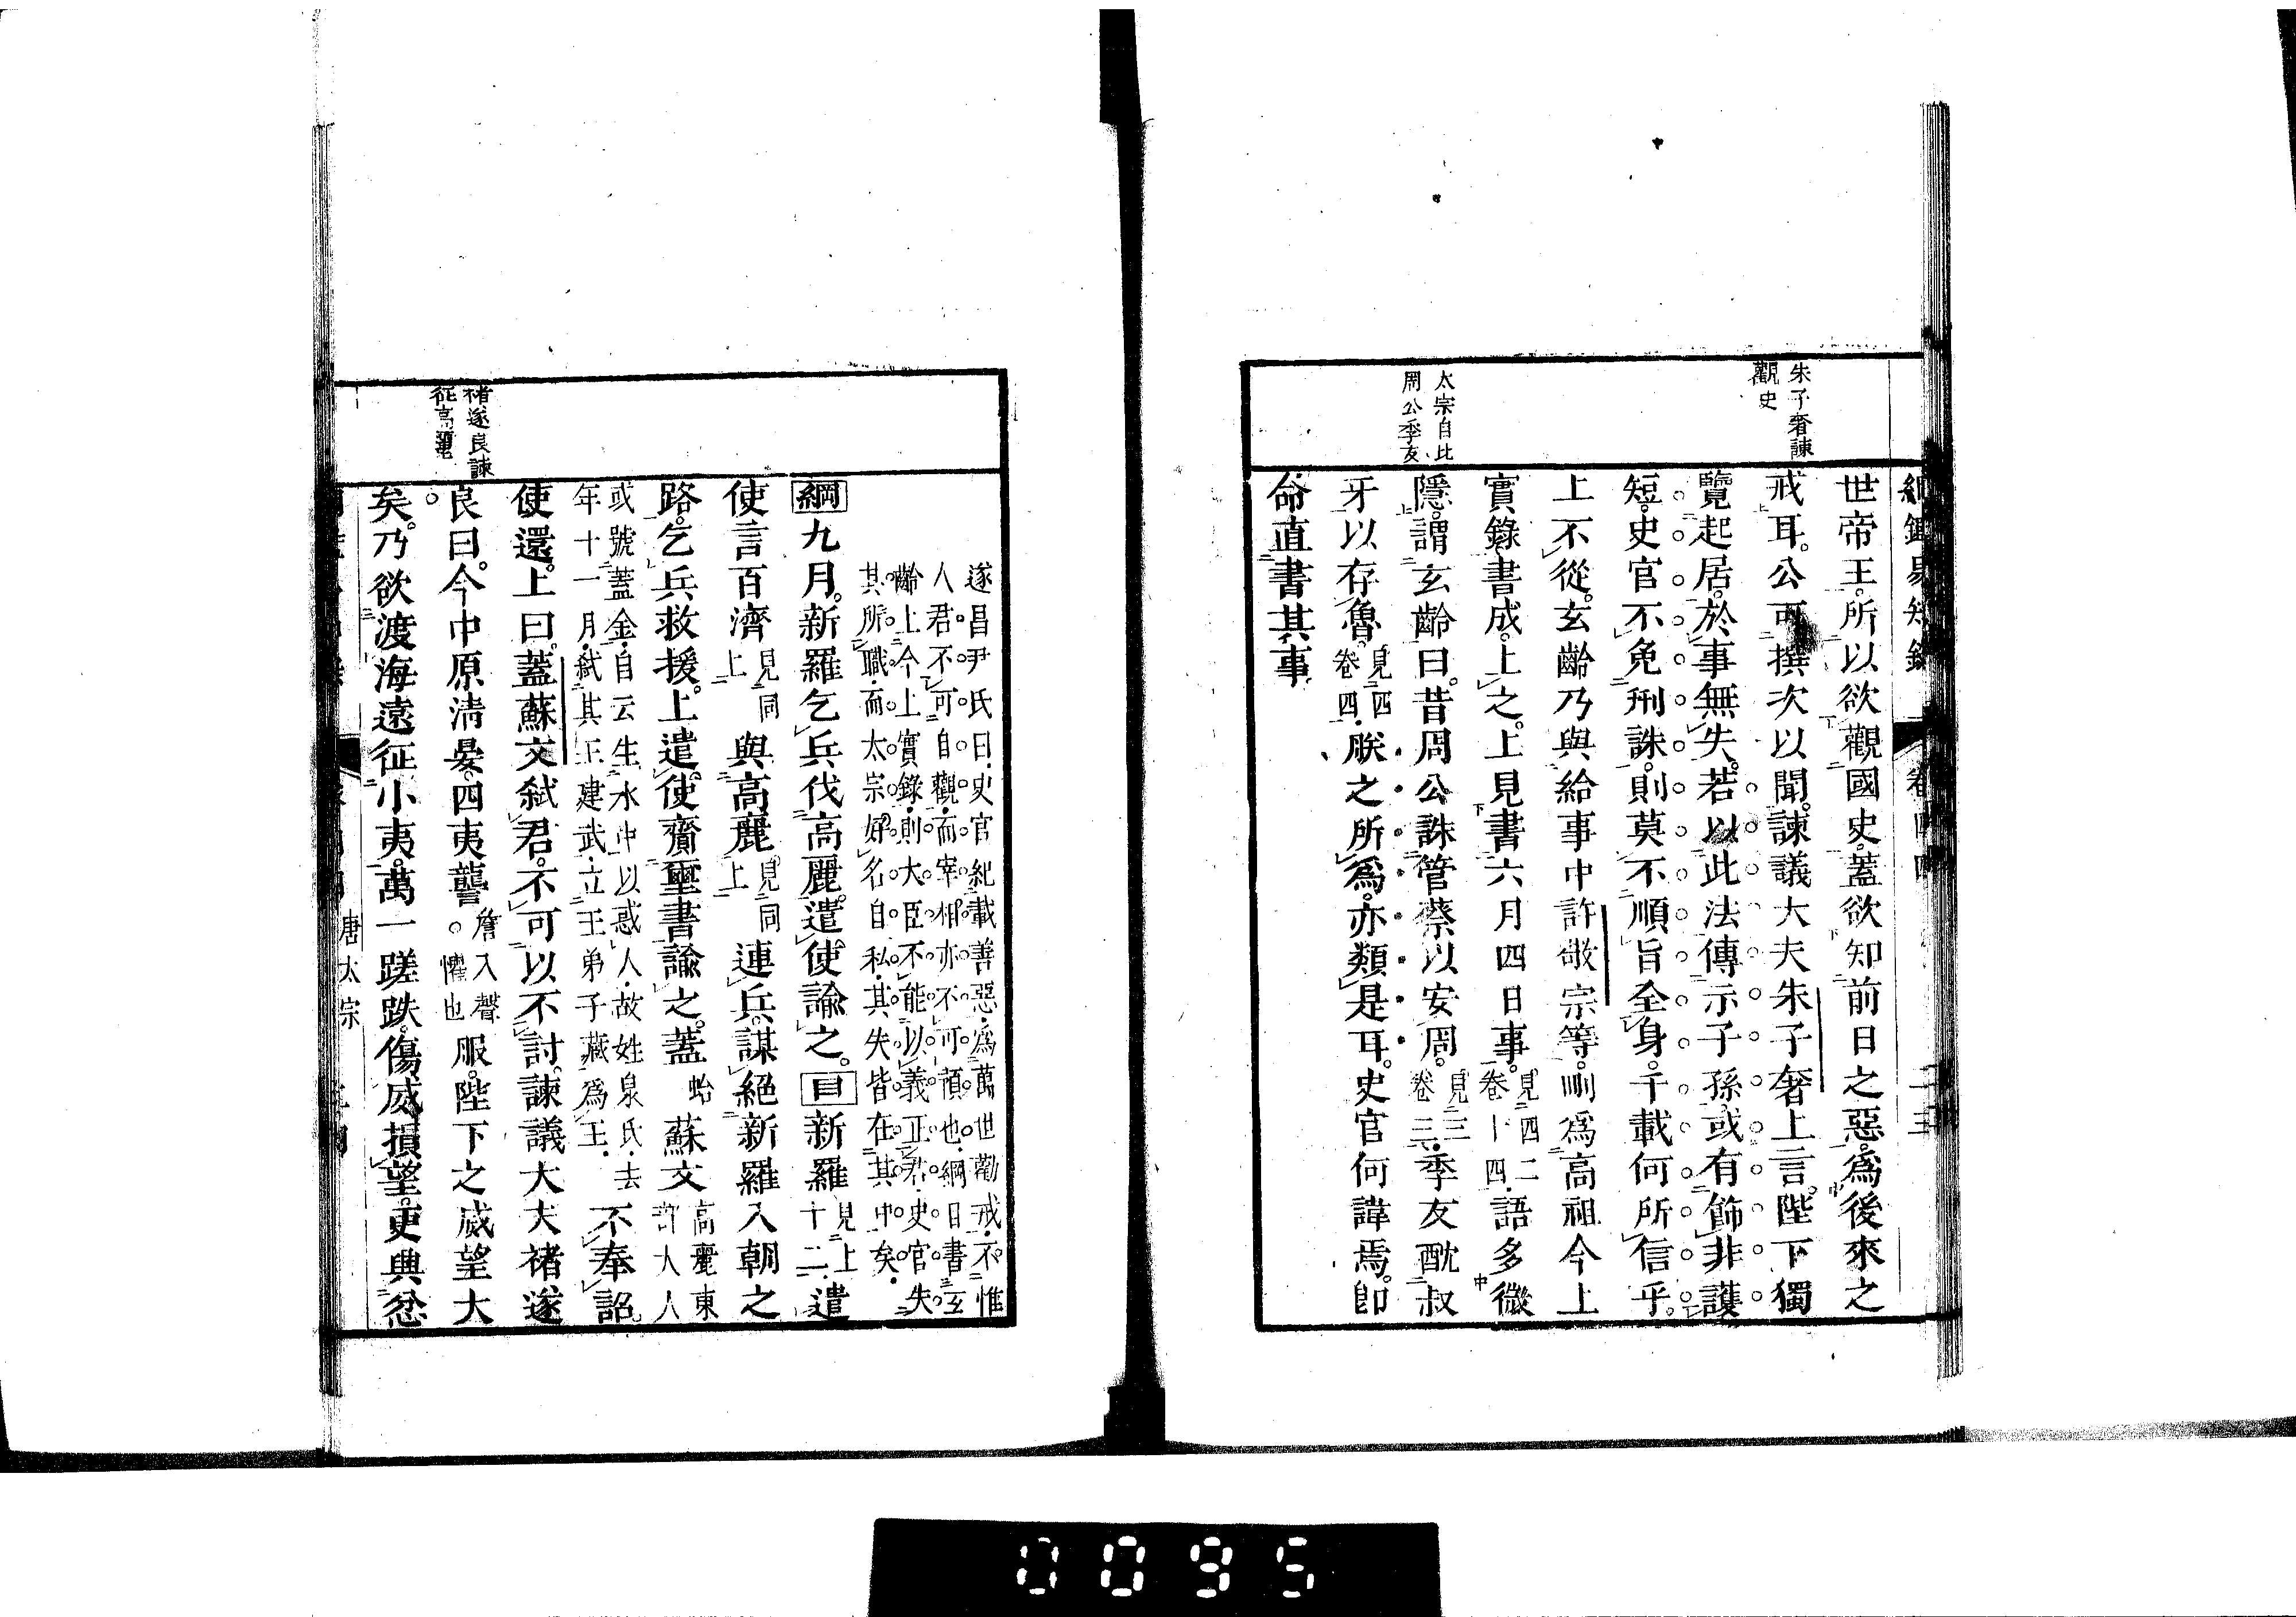 朱子奢諫
觀史
太宗自比
周公季友
世帝王。所以欲觀國史。蓋欲知前日之惡。爲後來之
戒耳。公可撰次以聞。諫議大夫朱子奢上言。陛下獨
覽起居。於事無失。若以此法傳示子孫。或有飾非護
短。史官不免刑誅。則莫不順旨全身。千載何所信乎。
上不從。玄齡乃與給事中許敬宗等。刪爲高祖今上
實錄。書成。上之。上見書六月四日事。見四二卷十四.語多微
隱。謂玄齡曰。昔周公誅管蔡以安周。見三卷三.季友酖叔
牙以存魯。見四卷四.朕之所爲。亦類是耳。史官何諱焉。卽
命直書其事
褚遂良諫
征高麗
遂昌尹氏曰.史官紀載善惡.爲萬世勸戒.不惟
人君不可自觀.而宰相亦不可預也.綱目書玄
齡上今上實錄.則大臣不能以義正君.史官失
其所職.而太宗好名自私.其失皆在其中矣.
綱九月。新羅乞兵伐高麗。遣使諭之。目新羅見上十二.遣
使言百濟見同上與高麗見同上連兵。謀絕新羅入朝之
路。乞兵救援。上遣使齎璽書諭之。蓋蛤蘇文高麗東部大人
或號蓋金.自云生水中以惑人.故姓泉氏.去
年十一月.弒其王建武.立王弟子藏爲王.不奉詔。
使還。上曰。蓋蘇文弒君。不可以不討。諫議大夫褚遂
良曰。今中原清晏。四夷讋詹入聲懼也服。陛下之威望大
矣。乃欲渡海遠征小夷。萬一蹉跌。傷威損望。更興忿
唐太宗
0095